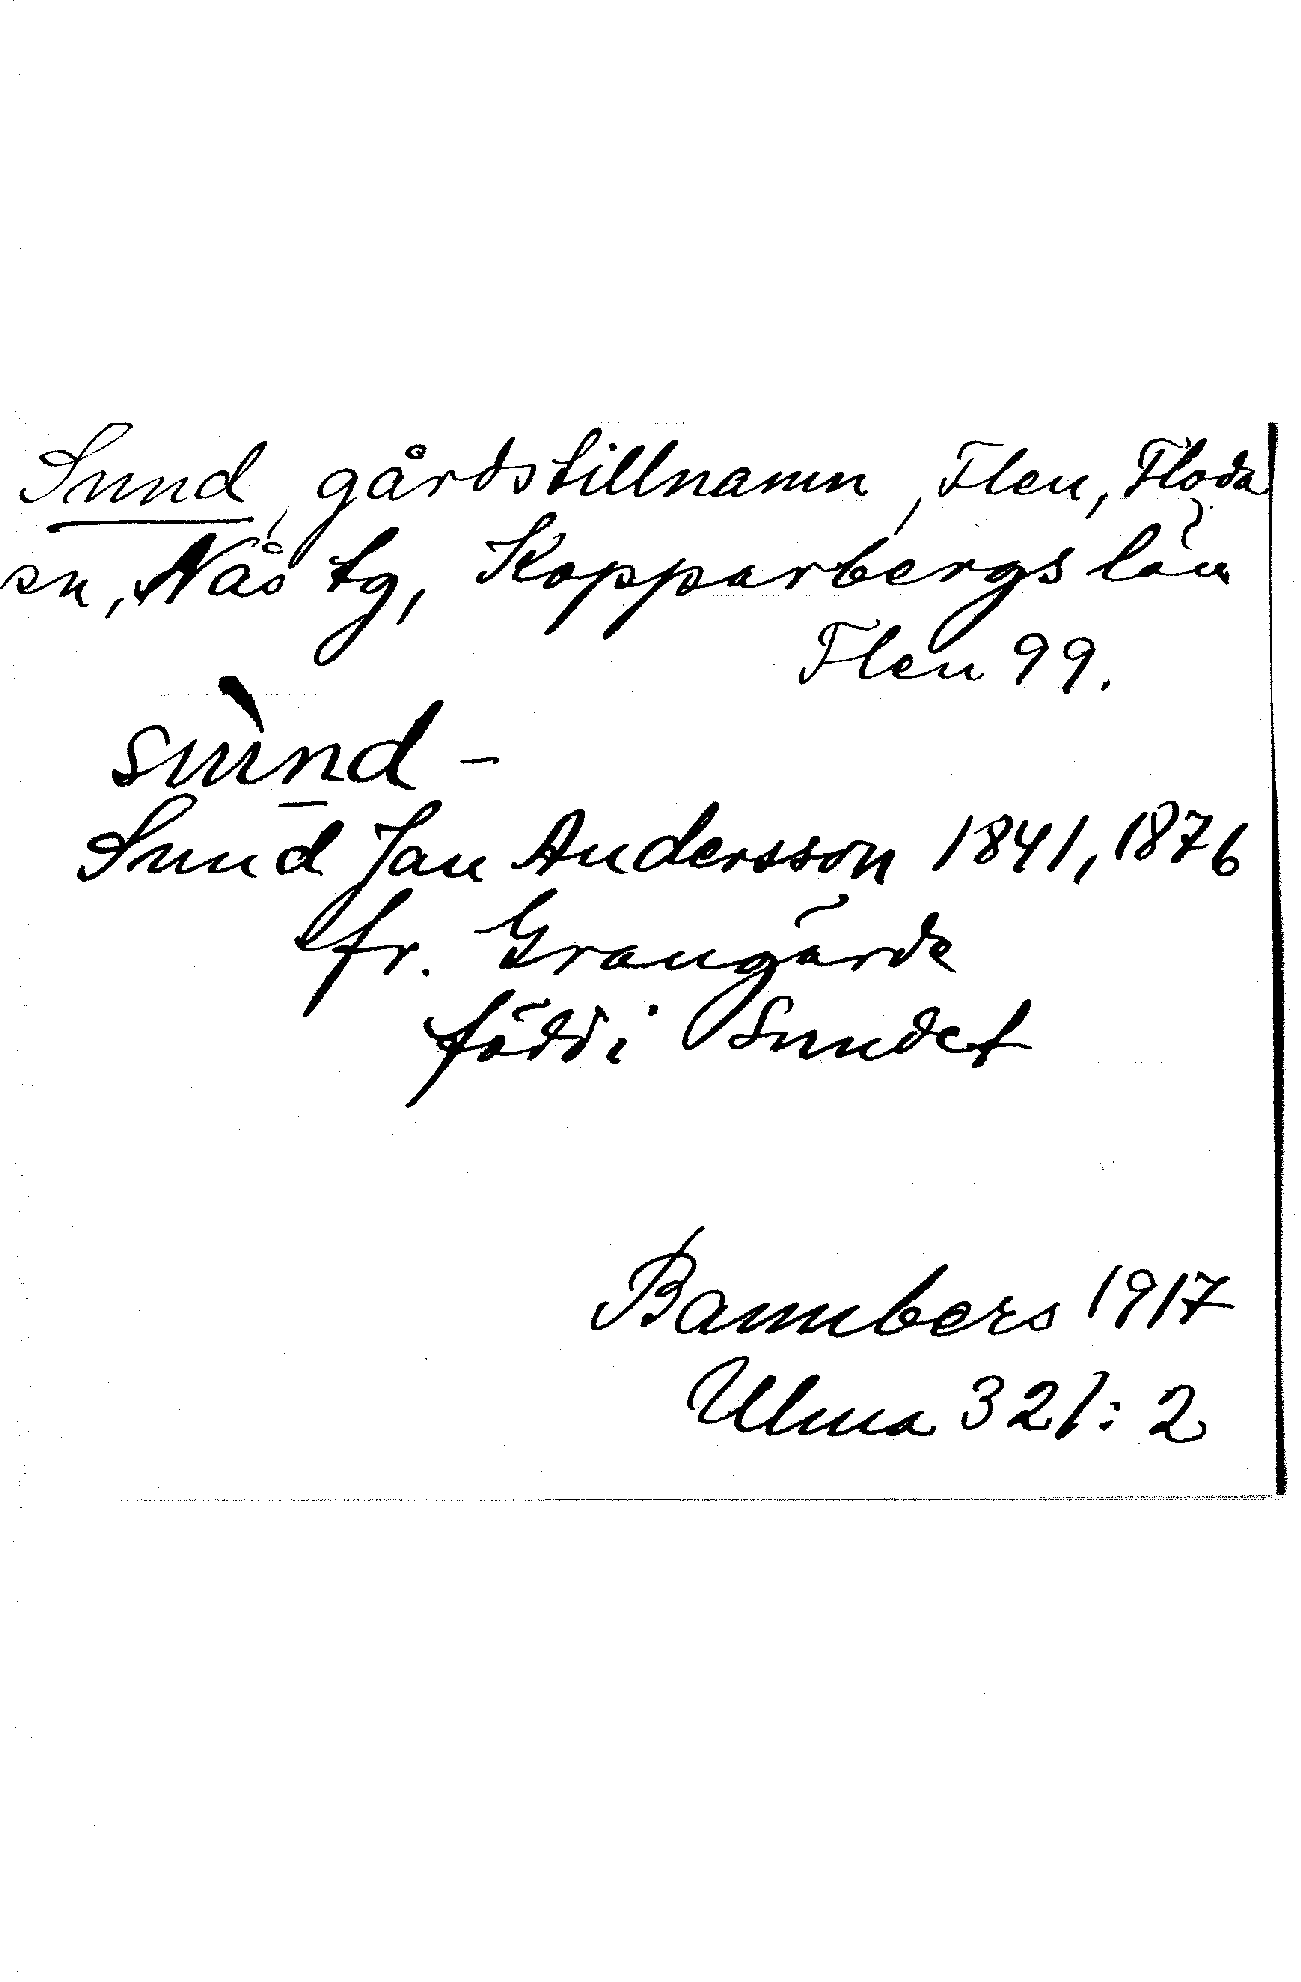 Sund, gårdstillnamn, Flen, Floda
sn, Nås tg, Kopparbergs län
Flen 99.
sùnd -
Sund Jan Andersson 1841, 1876
fr. Grangärde
född i Sundet
Bannbers 1917
Ulma 321:2